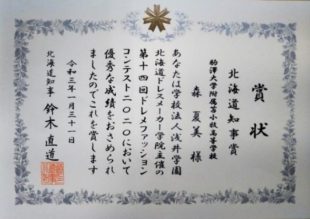 賞状
北海道知事賞
駒澤大学附属苫小牧高等学校
森 夏美 様
あなたは学校法人浅井学園
北海道ドレスメーカー学院主催の
第十四回ドレメファッション
コンテスト二〇二〇において
優秀な成績をおさめられ
ましたのでこれを賞します
令和三年一月三十一日
北海道知事 鈴木直道